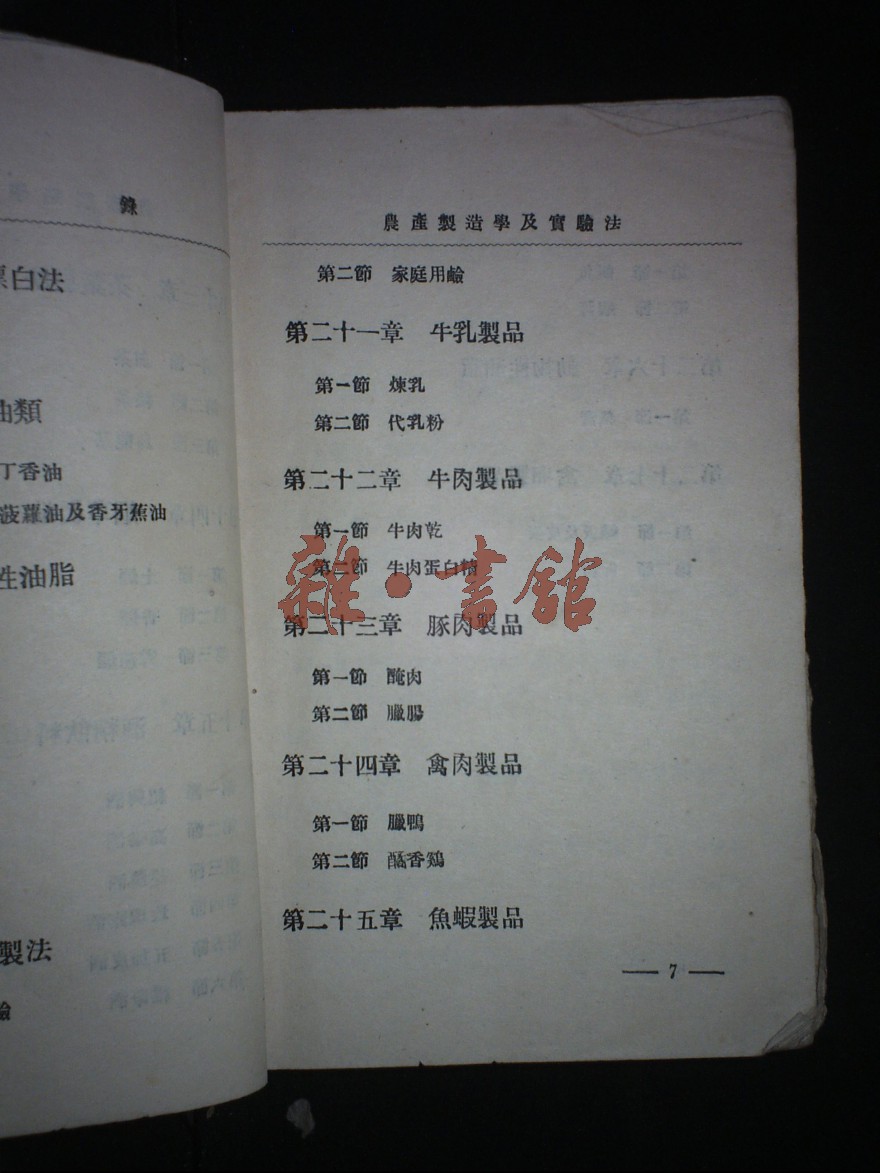 錄
白法
油類
丁香油
菠蘿油及香牙蕉油
性油脂
製法
農產製造學及實驗法
第二節 家庭用鹼
第二十一章 牛乳製品
第一節 煉乳
第二節 代乳粉
第二十二章 牛肉製品
第一節 牛肉乾
第二節 牛肉蛋白精
雜·書館
第二十三章 豚肉製品
第一節 醃肉
第二節 臘腸
第二十四章 禽肉製品
第一節 臘鴨
第二節 香鷄
第二十五章 魚蝦製品
— 7 —